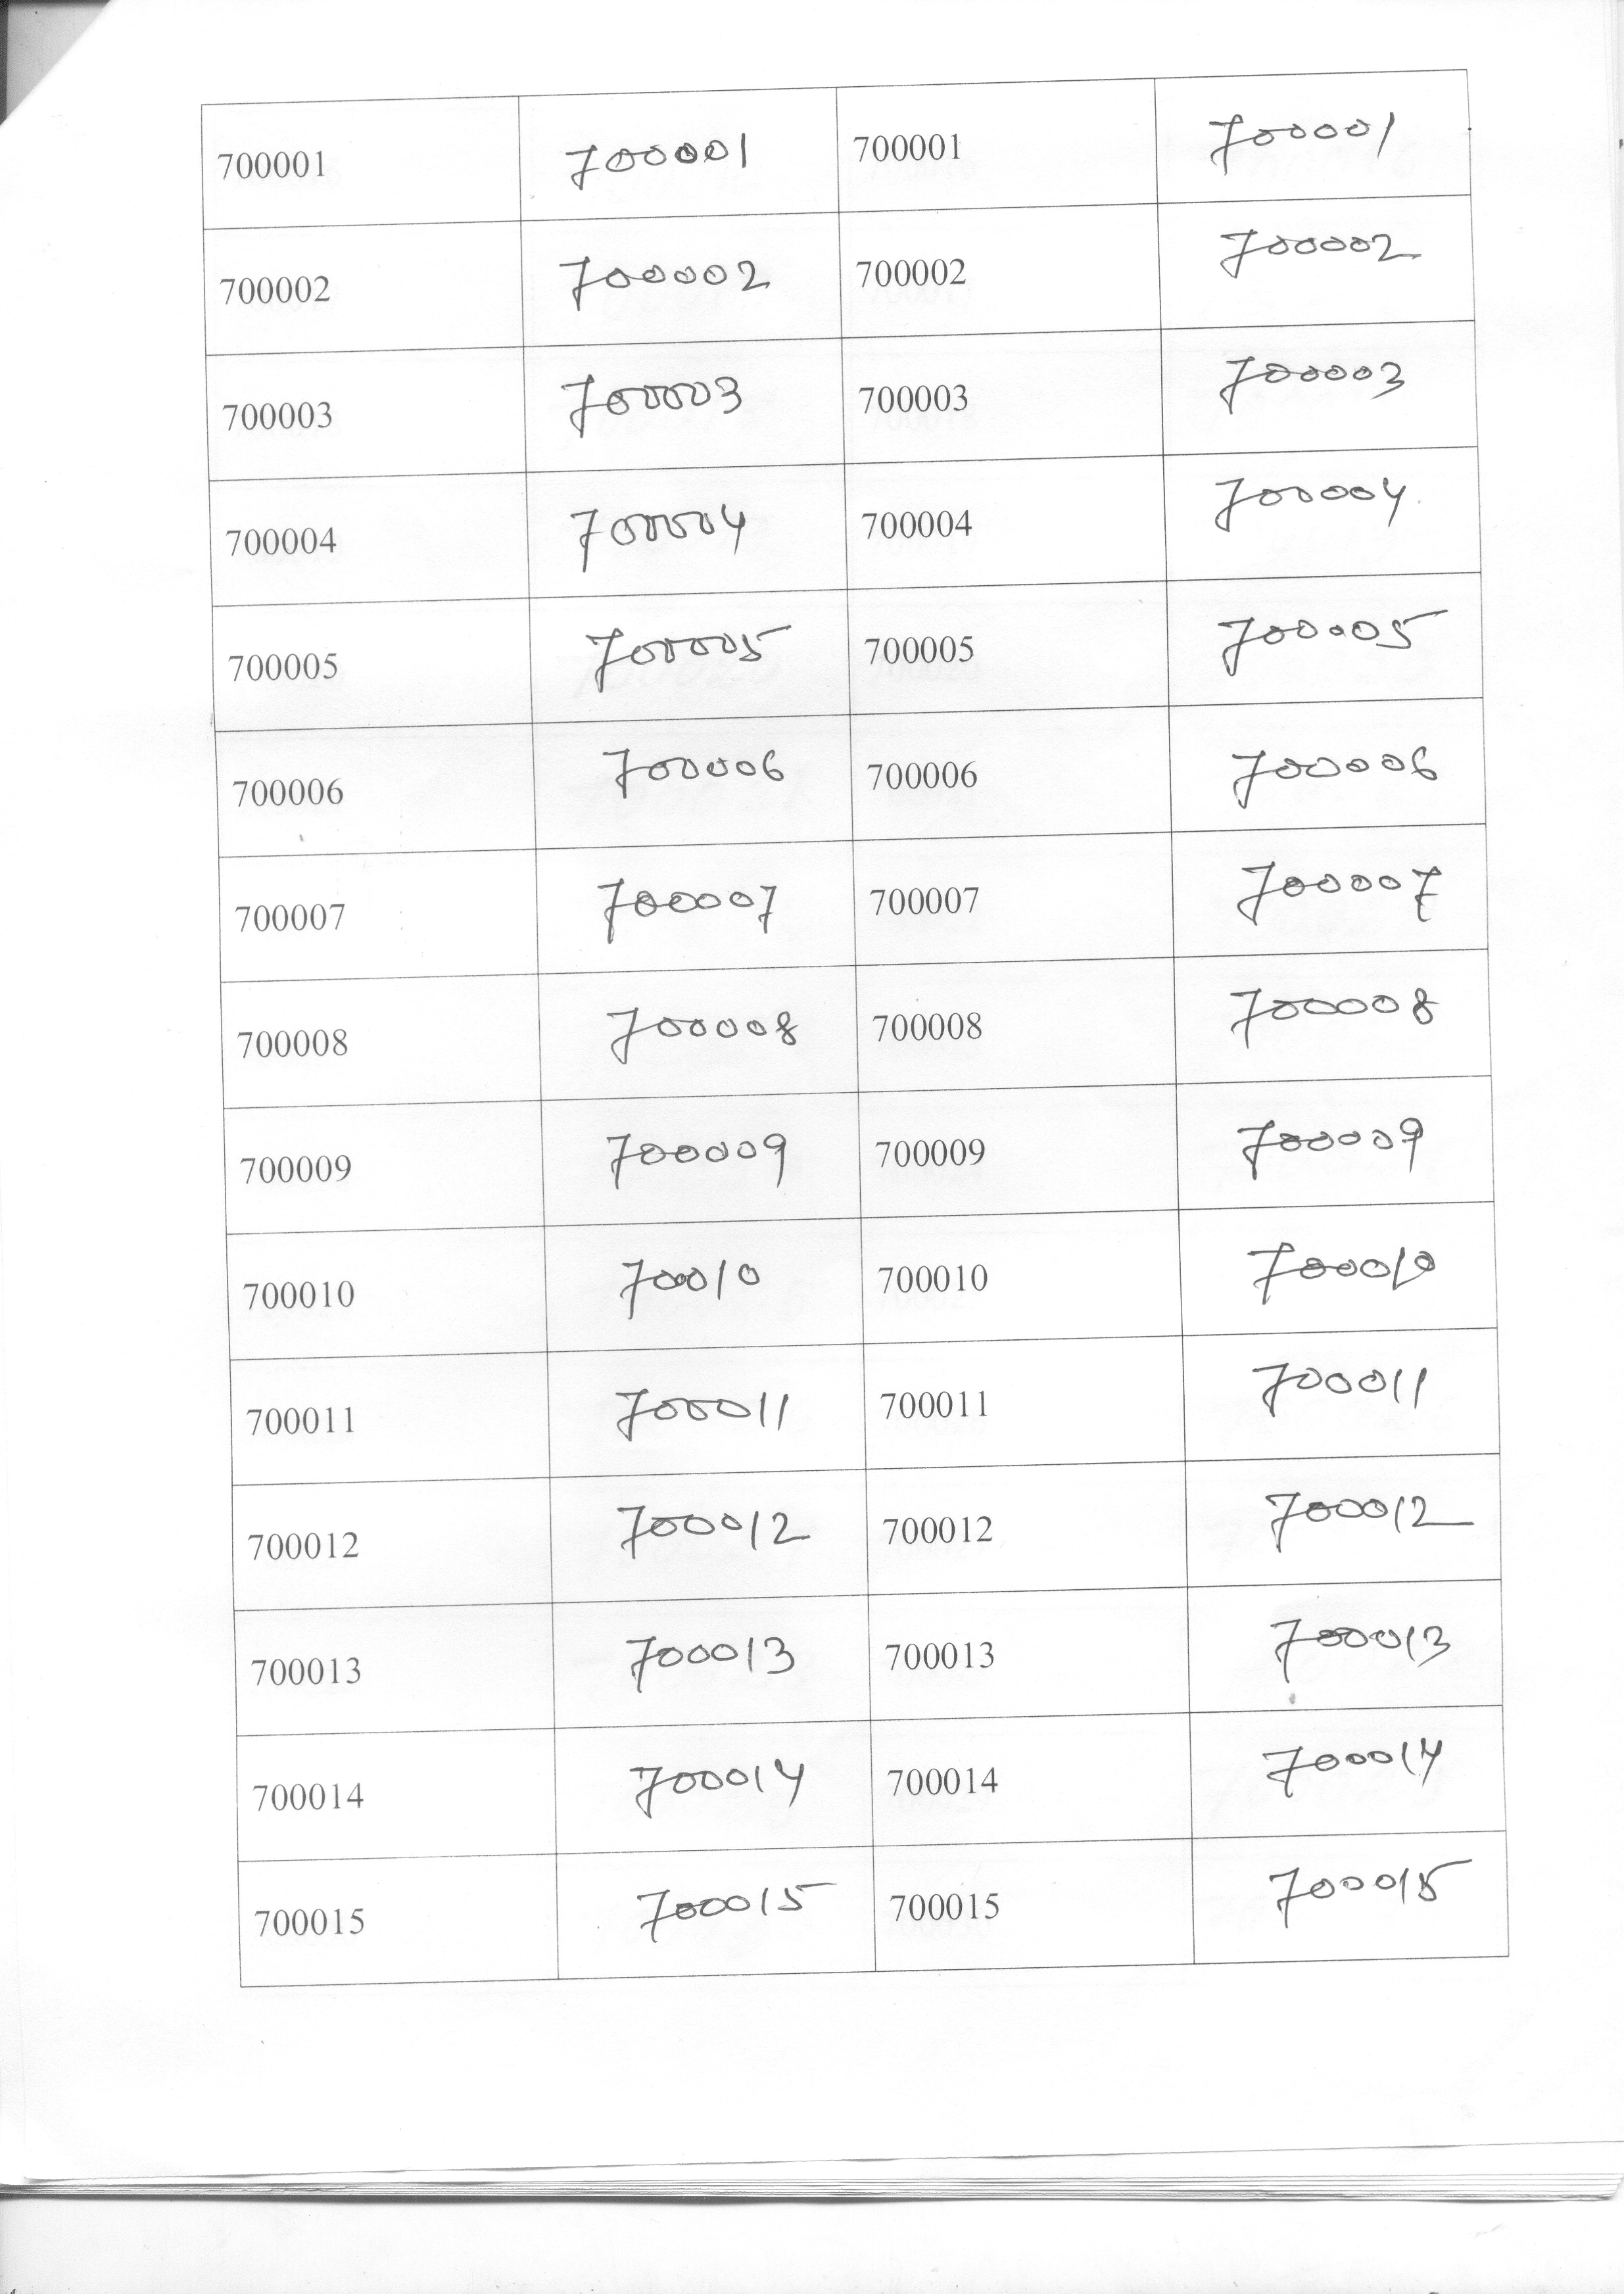 700001 700001 700001 700001
700002 700002 700002 700002
700003 700003 700003 700003
700004 700004 700004 700004
700005 700005 700005 700005
700006 700006 700006 700006
700007 700007 700007 700007
700008 700008 700008 700008
700009 700009 700009 700009
700010 700010 700010 700010
700011 700011 700011 700011
700012 700012 700012 700012
700013 700013 700013 700013
700014 700014 700014 700014
700015 700015 700015 700015